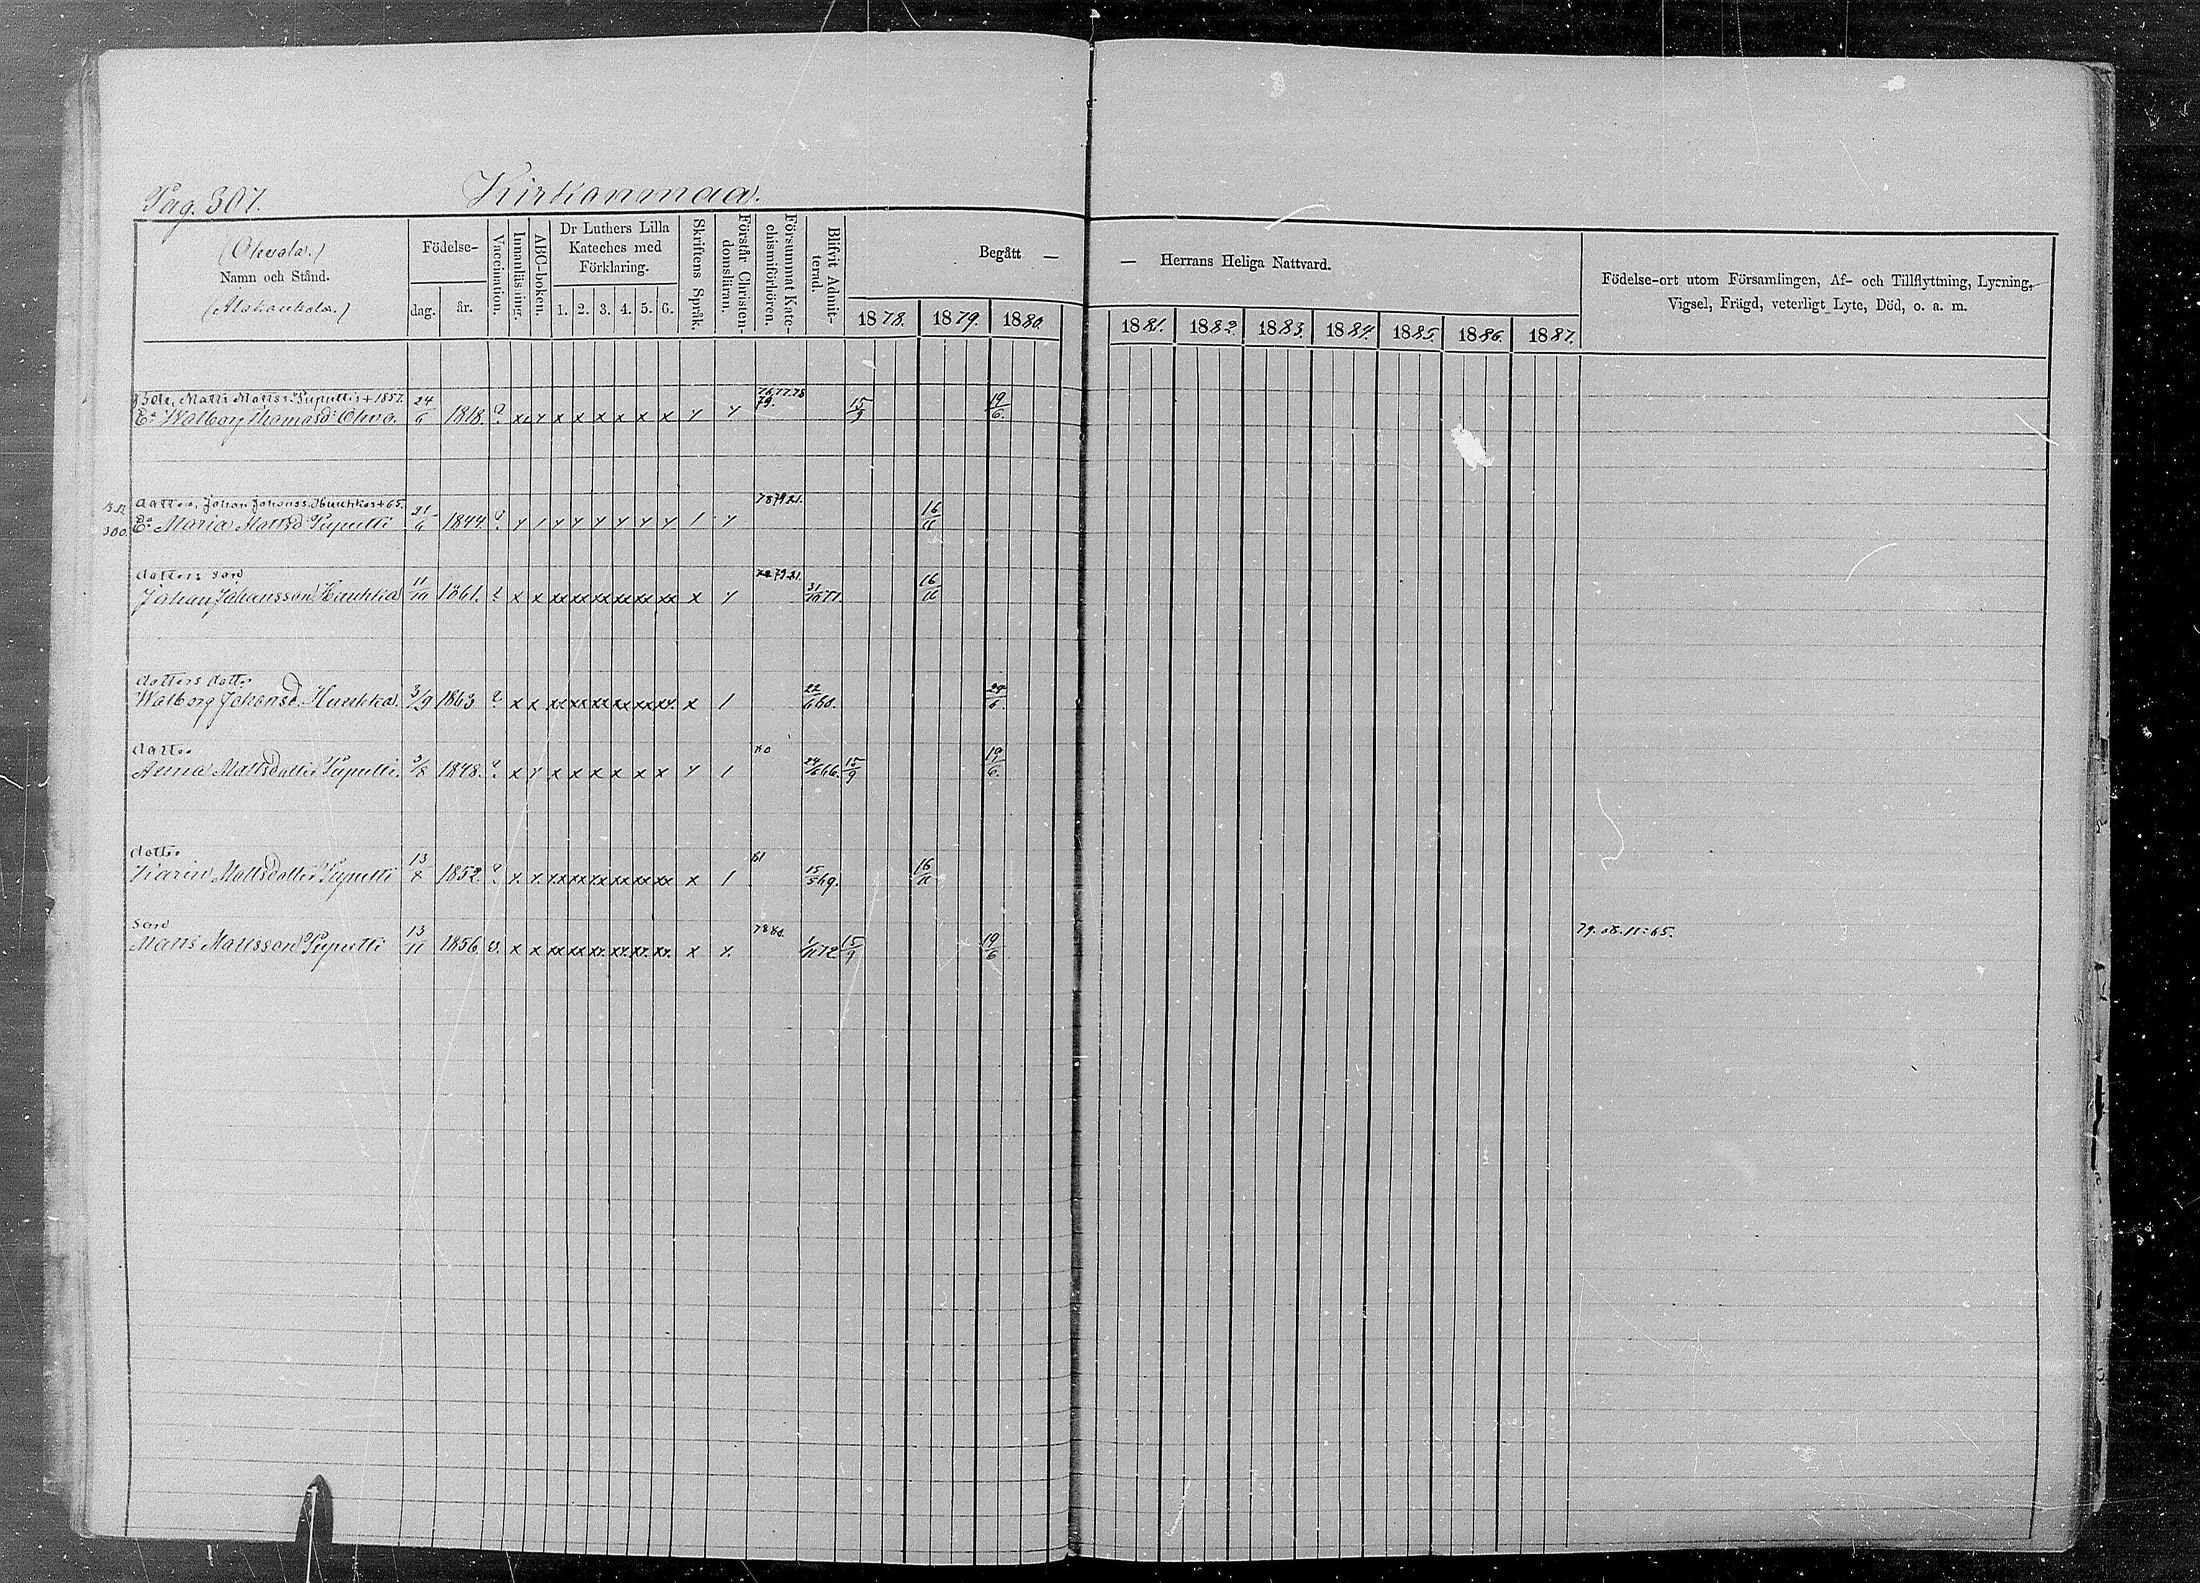 Pag. 307. Kirkonmaa.
(Ohvola.)
Namn och Stånd.
Födelse-
dag. år.
Vaccination.
Innanläsning.
ABC-boken.
Dr Luthers Lilla
Kateches med
Förklaring.
1. 2. 3. 4. 5. 6.
Skriftens Språk.
Förstår Christen-
domsläran.
Försummat Kate-
chismiförhören.
Blifvit Admit-
terad.
Begått — — Herrans Heliga Nattvard.
1878. 1879. 1880. 1881. 1882. 1883. 1884. 1885. 1886. 1887.
Födelse-ort utom Församlingen, Af- och Tillflyttning, Lysning,
Vigsel, Frägd, veterligt Lyte, Död, o. a. m.
Matti Matss. Puputtis + 1857. 24 76 77 78
E:a Walborg Thomasd. Ohvo. 6 1818. x x x x x x 79. 15/9 19/6.
dotter, Johan Johanss. Huuhkas + 65. 21 78 79 81.
300. E:a Maria Mattsd Puputti 6 1844. 16/11
dotters son 79 81.
Johan Johansson Huuhka 11/10 1861. x x xx xx xx xx xx xx x 31/10 77. 16/11
dotters dotter
Walborg Johansd. Huuhka. 3/9 1863. x x xx xx xx xx xx xx. x 1 22/6 80. 24/6.
dotter 80
Anna Mattsdotter Puputti. 3/8 1848. x x x x x x x 1 24/6 66. 15/9 19/6.
dotter 81
Karin Mattsdotter Puputti 13/8 1852. x. x. xx xx xx xx xx xx x 1 15/5 69. 16/11
son 78 80.
Matts Mattsson Puputti 13/11 1856. v. x x xx xx xx. xx. xx. xx. x 1/11 72. 15/9 19/6 79.